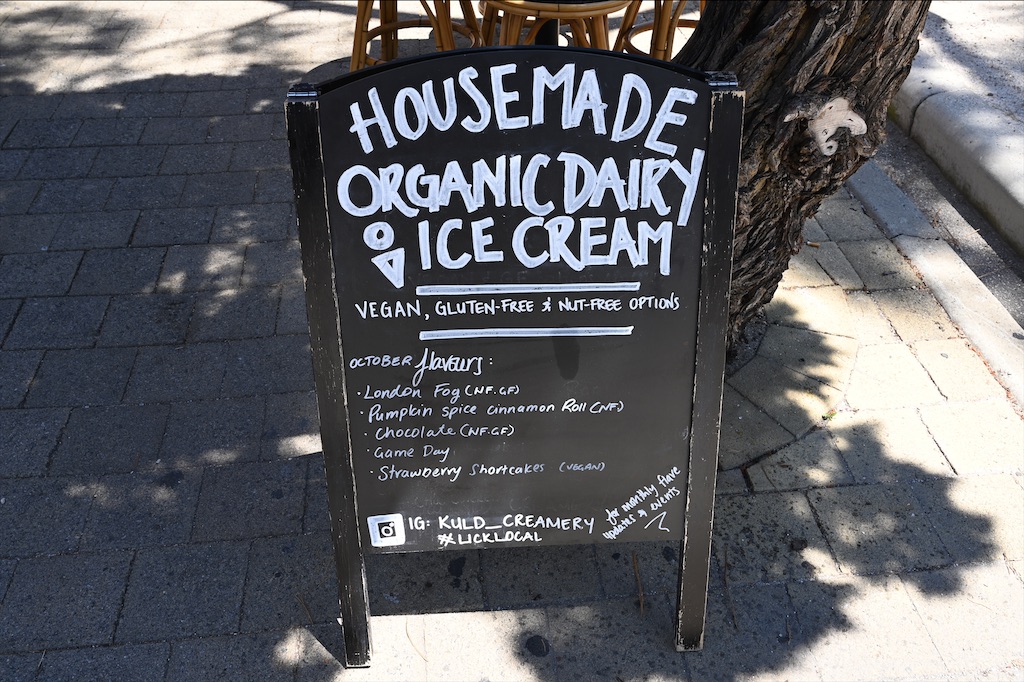 HOUSEMADE
ORGANIC DAIRY
ICE CREAM
VEGAN, GLUTEN-FREE & NUT-FREE OPTIONS
OCTOBER flavours:
· London Fog (NF.GF)
· Pumpkin spice cinnamon Roll (NF)
· Chocolate (NF.GF)
· Game Day
· Strawberry Shortcakes (VEGAN)
for monthly flave
updates & events
IG: KULD_CREAMERY
#LICKLOCAL